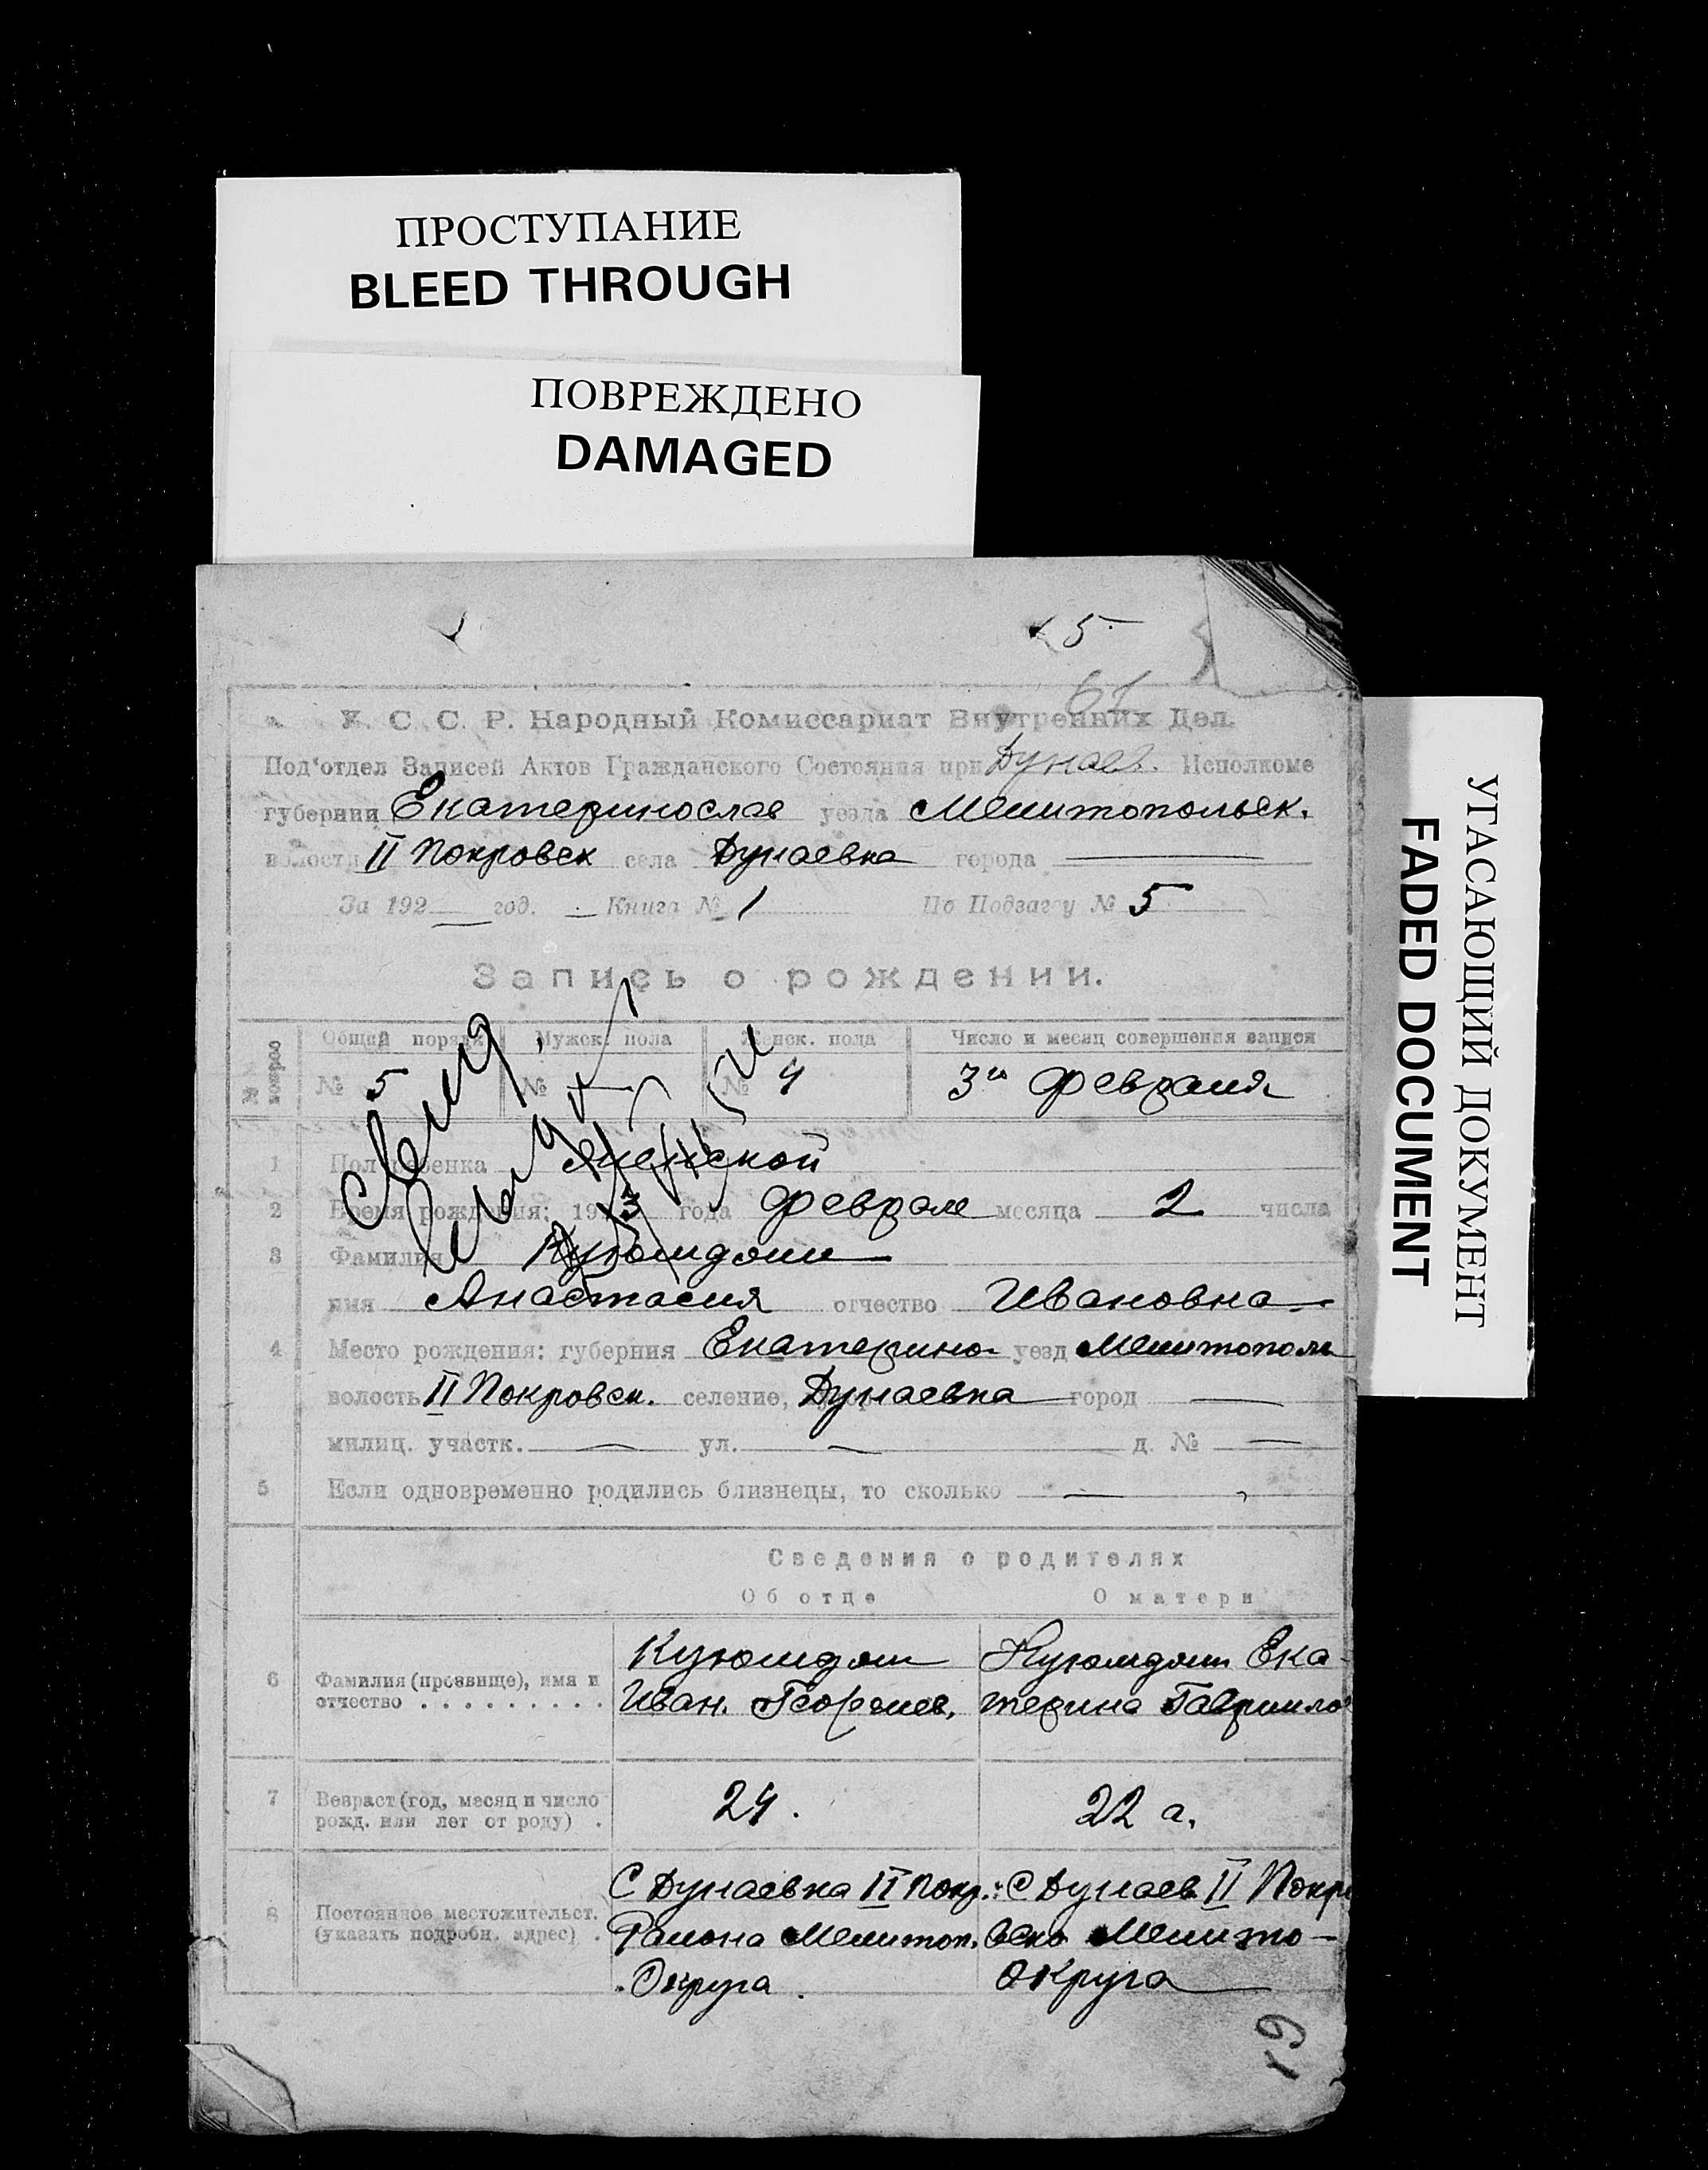 ПРОСТУПАНИЕ
BLEED THROUGH
ПОВРЕЖДЕНО
DAMAGED
УГАСАЮЩИЙ ДОКУМЕНТ
FADED DOCUMENT
5
61
У. С. С. Р. Народный Комиссариат Внутренних Дел.
Под'отдел Записей Актов Гражданского Состояния при Дунаев. Исполкоме
губернии Екатеринослав уезда Мелитопольск.
волости II Покровск села Дунаевка города —
За 192 год. Книга № 1 По Подзагсу № 5
Запись о рождении.
Общий порядк Мужск. пола Женск. пола Число и месяц совершения записи
№ 5 № — № 4 3го февраля
1 Пол ребенка Женской
2 Время рождения: 19 3 года феврале месяца 2 числа
3 Фамилия Куюмджи
имя Анастасия отчество Ивановна
4 Место рождения: губерния Екатерино- уезд Мелитополь
волость II Покровск. селение, Дунаевка город —
милиц. участк. — ул. — д. № —
5 Если одновременно родились близнецы, то сколько —
Сведения о родителях
Об отце О матери
6 Фамилия (прозвище), имя и отчество
Куюмджи
Иван. Георгиев.
Куюмджи Ека-
терина Гаврило
7 Возраст (год, месяц и число
рожд. или лет от роду) .
24.
22 г.
8 Постоянное местожительст.
(указать подробн. адрес) .
С Дунаевка II Покр.
Района Мелитоп.
Округа.
С Дунаев II Покро
вско Мелито-
Округа
61